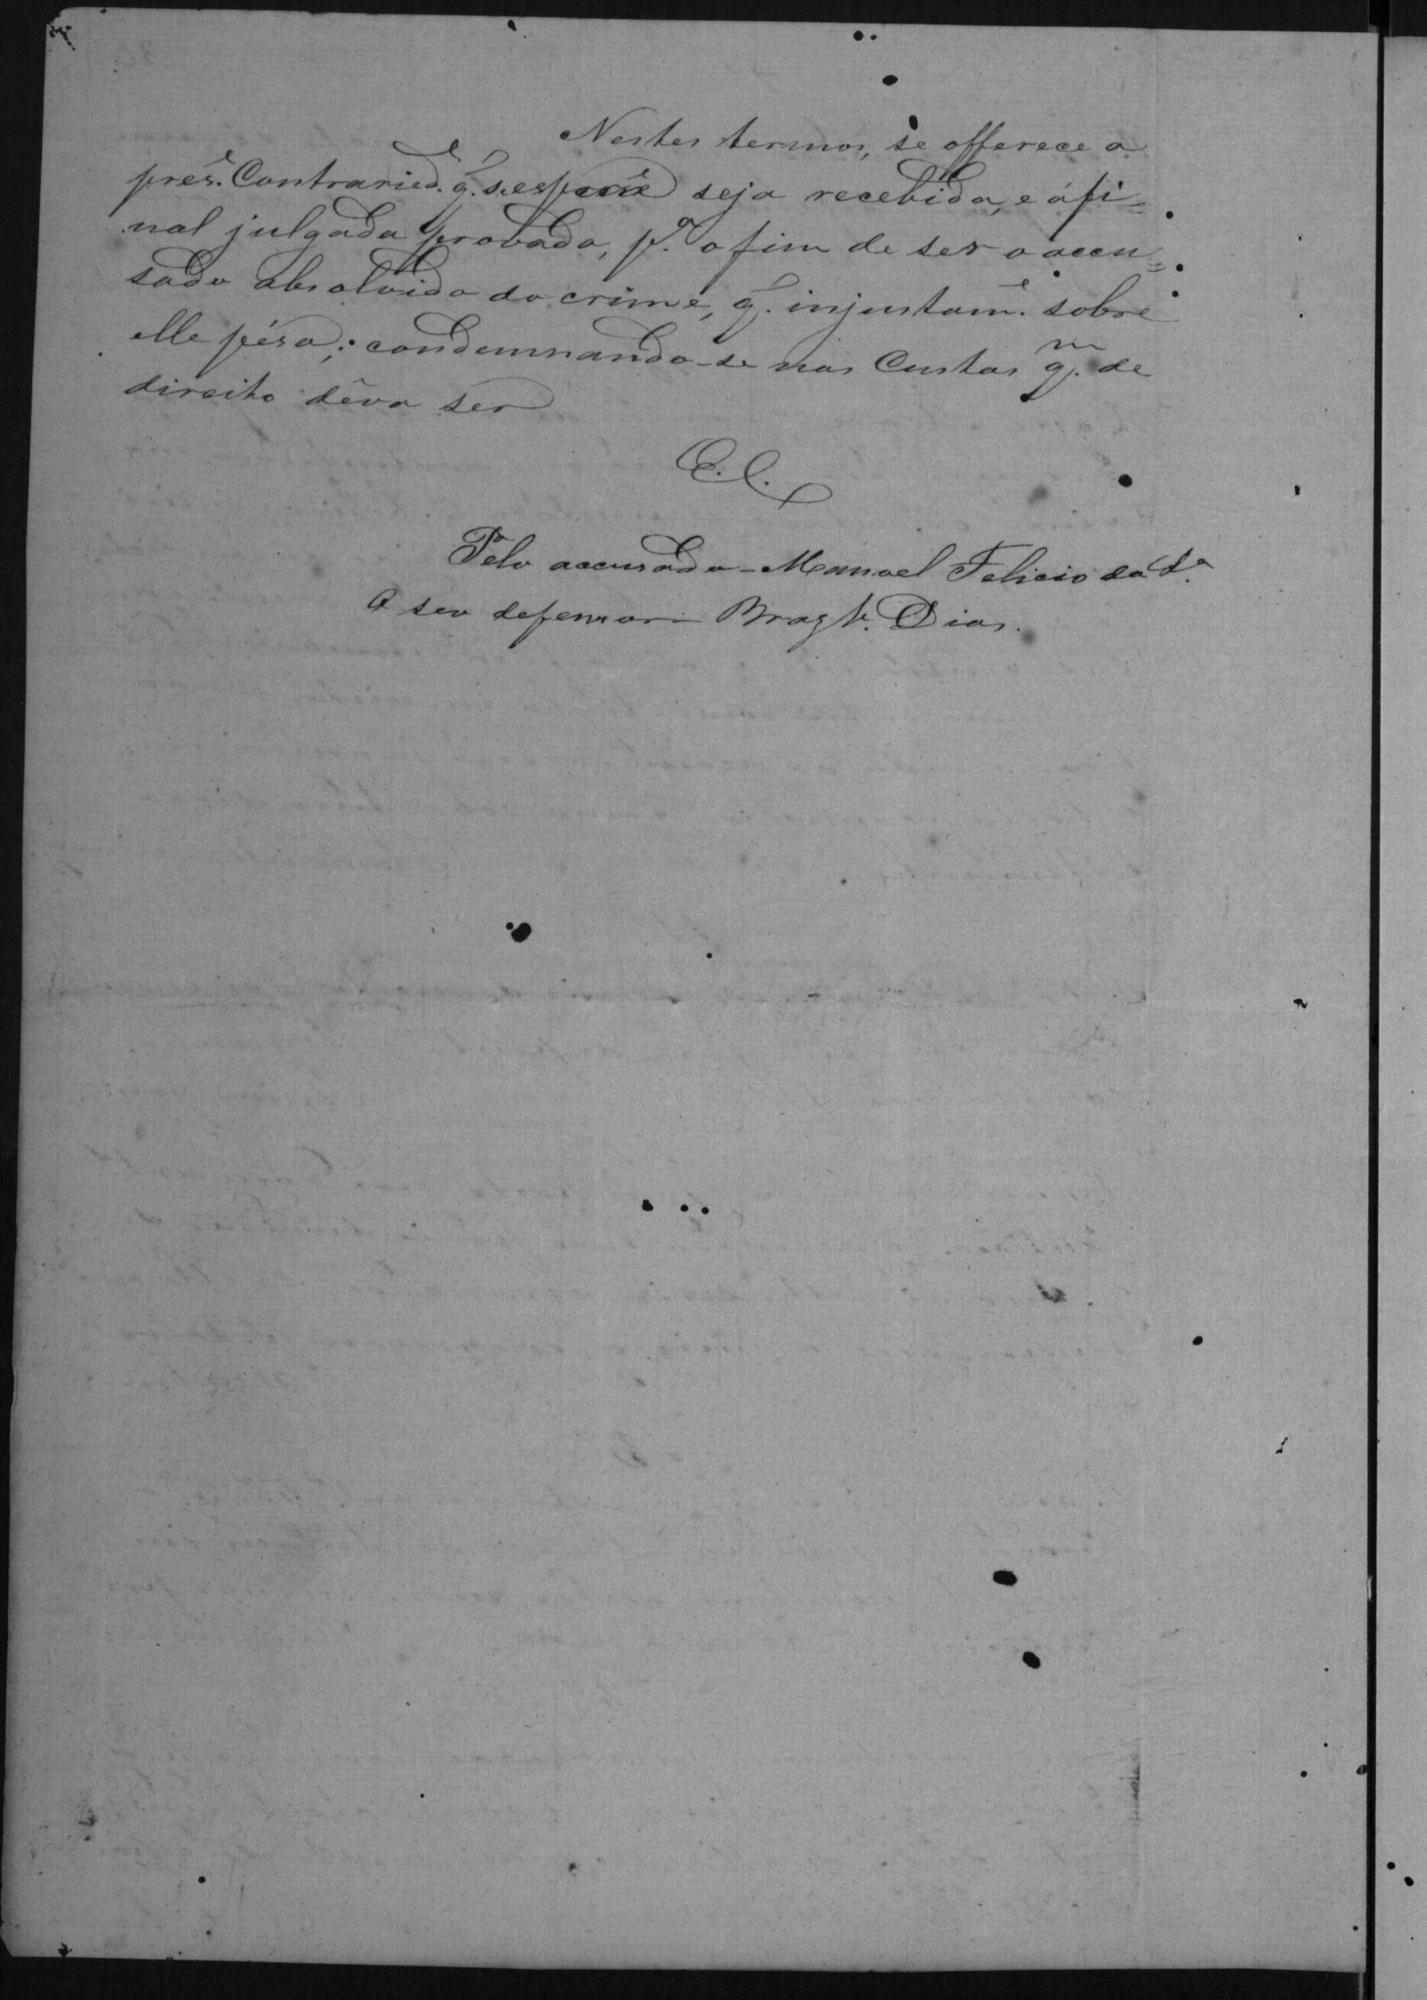 Nestes termos, se offerece a
pres.e Contraried.e q.' se espera seja recebida, e áfi=
nal julgada provada, p.a o fim de ser o accu=
sado absolvido do crime, q.' injustam.e sobre
elle pésa; condemnando-se nas Custas q.m de
direito dêva ser
E. C.
Pelo accusado - Manoel Felicio da S.a
O seu defensor - Braz V. Dias.